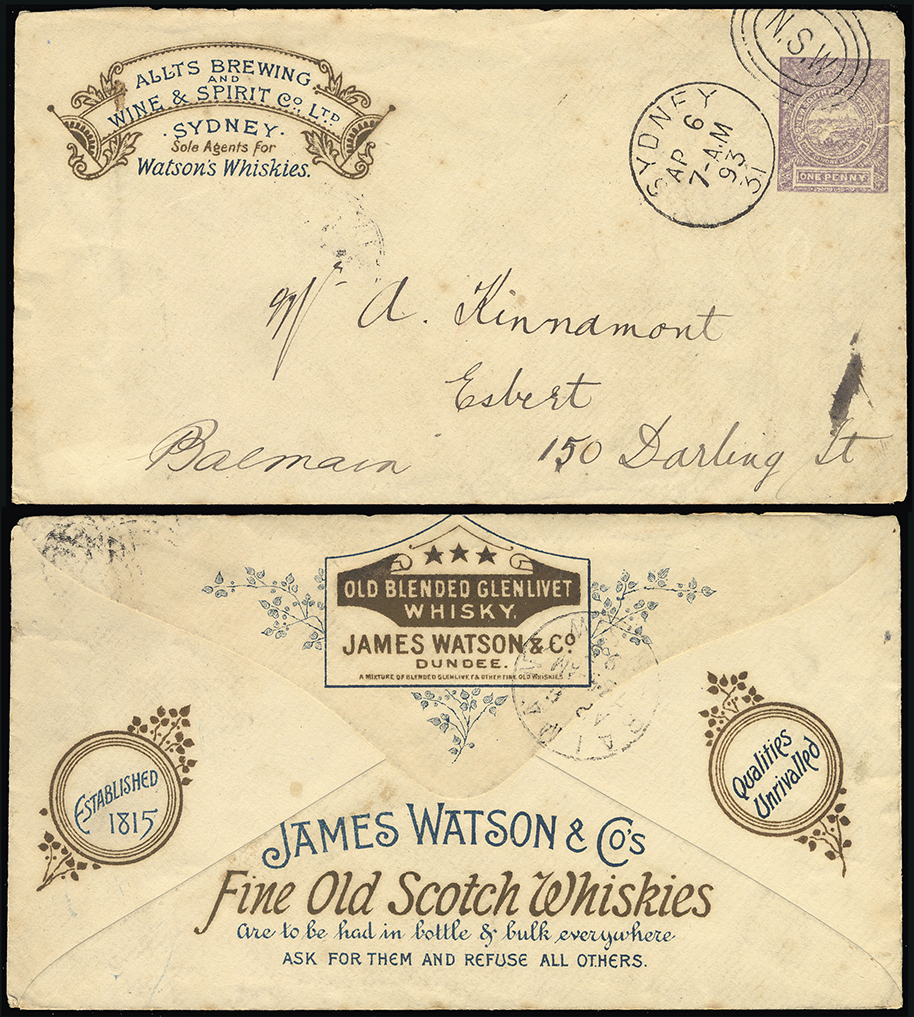 ALLTS BREWING
AND
WINE & SPIRIT Co. LTD
· SYDNEY ·
Sole Agents for
Watson's Whiskies.
N.S.W
SYDNEY
AP 6
7-AM
93
31
ONE PENNY
Mr A. Kinnamont
Esbert
150 Darling St
Balmain
★★★
OLD BLENDED GLENLIVET
WHISKY,
JAMES WATSON & Co.
DUNDEE.
A MIXTURE OF BLENDED GLENLIVET & OTHER FINE OLD WHISKIES
ESTABLISHED
1815
Qualities
Unrivalled
JAMES WATSON & Co's
Fine Old Scotch Whiskies
are to be had in bottle & bulk everywhere
ASK FOR THEM AND REFUSE ALL OTHERS.